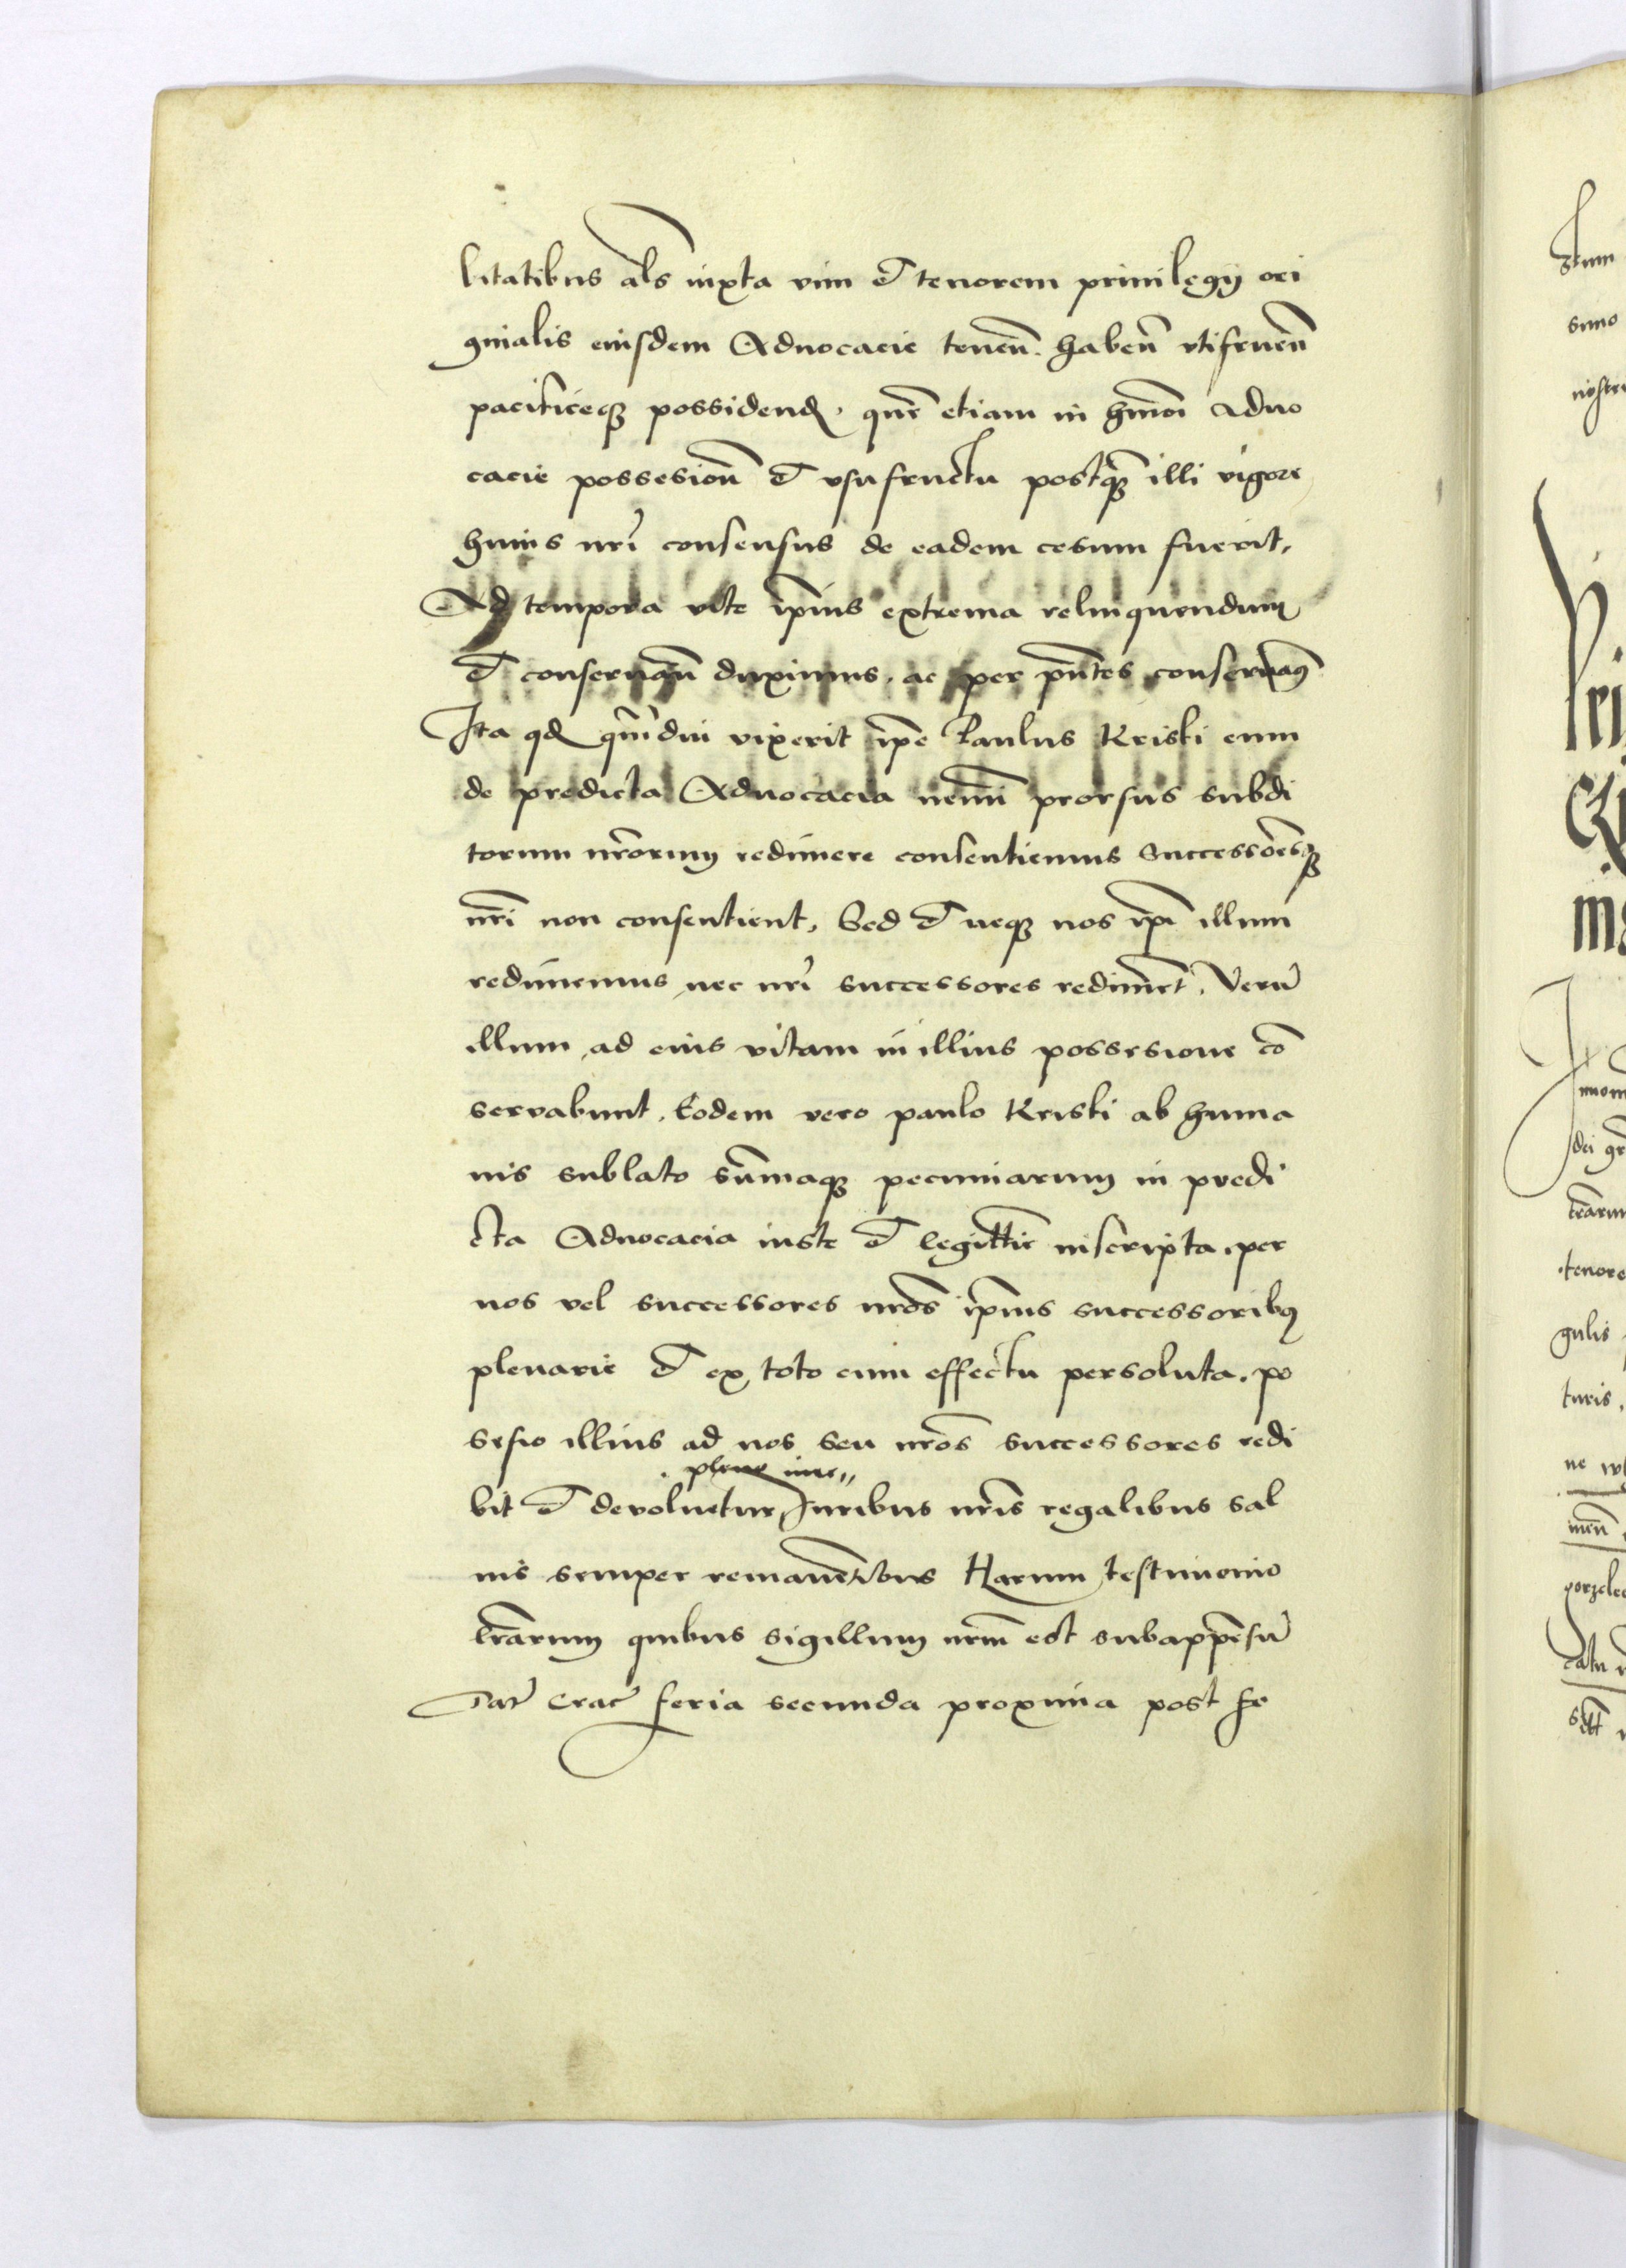 litatibus als iuxta vim et tenorem priuilegij ori
ginalis eiusdem Aduocacie teneñ. habeñ vtifrueñ
pacificeqꝫ possidenđ. quē etiam in hm̄oi aduo
cacie possesioñ et vsufructu postqꝫ illi vigore
huius nr̄i consensus de eadem cesum fuerit,
Ad tempora vite ip̄ius extrema relinquendum
et conseruañ duximus. ac per pn̄tes conseruam9
Ita qđ qm̄diu vixerit ip̄e Paulus Kriski eum
de predicta Aduocacia nemī prorsus subdi
torum nr̄orum redimere consentiemus Successoresqꝫ
nr̄i non consentient, Sed et neqꝫ nos ip̄i illum
redimemus nec nr̄i successores rediment. Verū
illum ad eius vitam in illius possesione cō
servabunt. Eodem vero paulo Kriski ab huma
nis sublato sūmaqꝫ pecuniarum in predi
cta Aduocacia iuste et legittīe inscripta. per
nos vel successores nr̄os ip̄ius successorib9
plenarie et ex toto cum effectu persoluta. po
sesio illius ad nos seu nr̄os successores redi
plene iure
bit et devoluetur, Iuribus nr̄is regalibus sal
uis semper remanētibus Harum testimonio
lr̄arum quibus sigillum nrm̄ est subappēsū
Dat Crac feria secunda proxima post fe